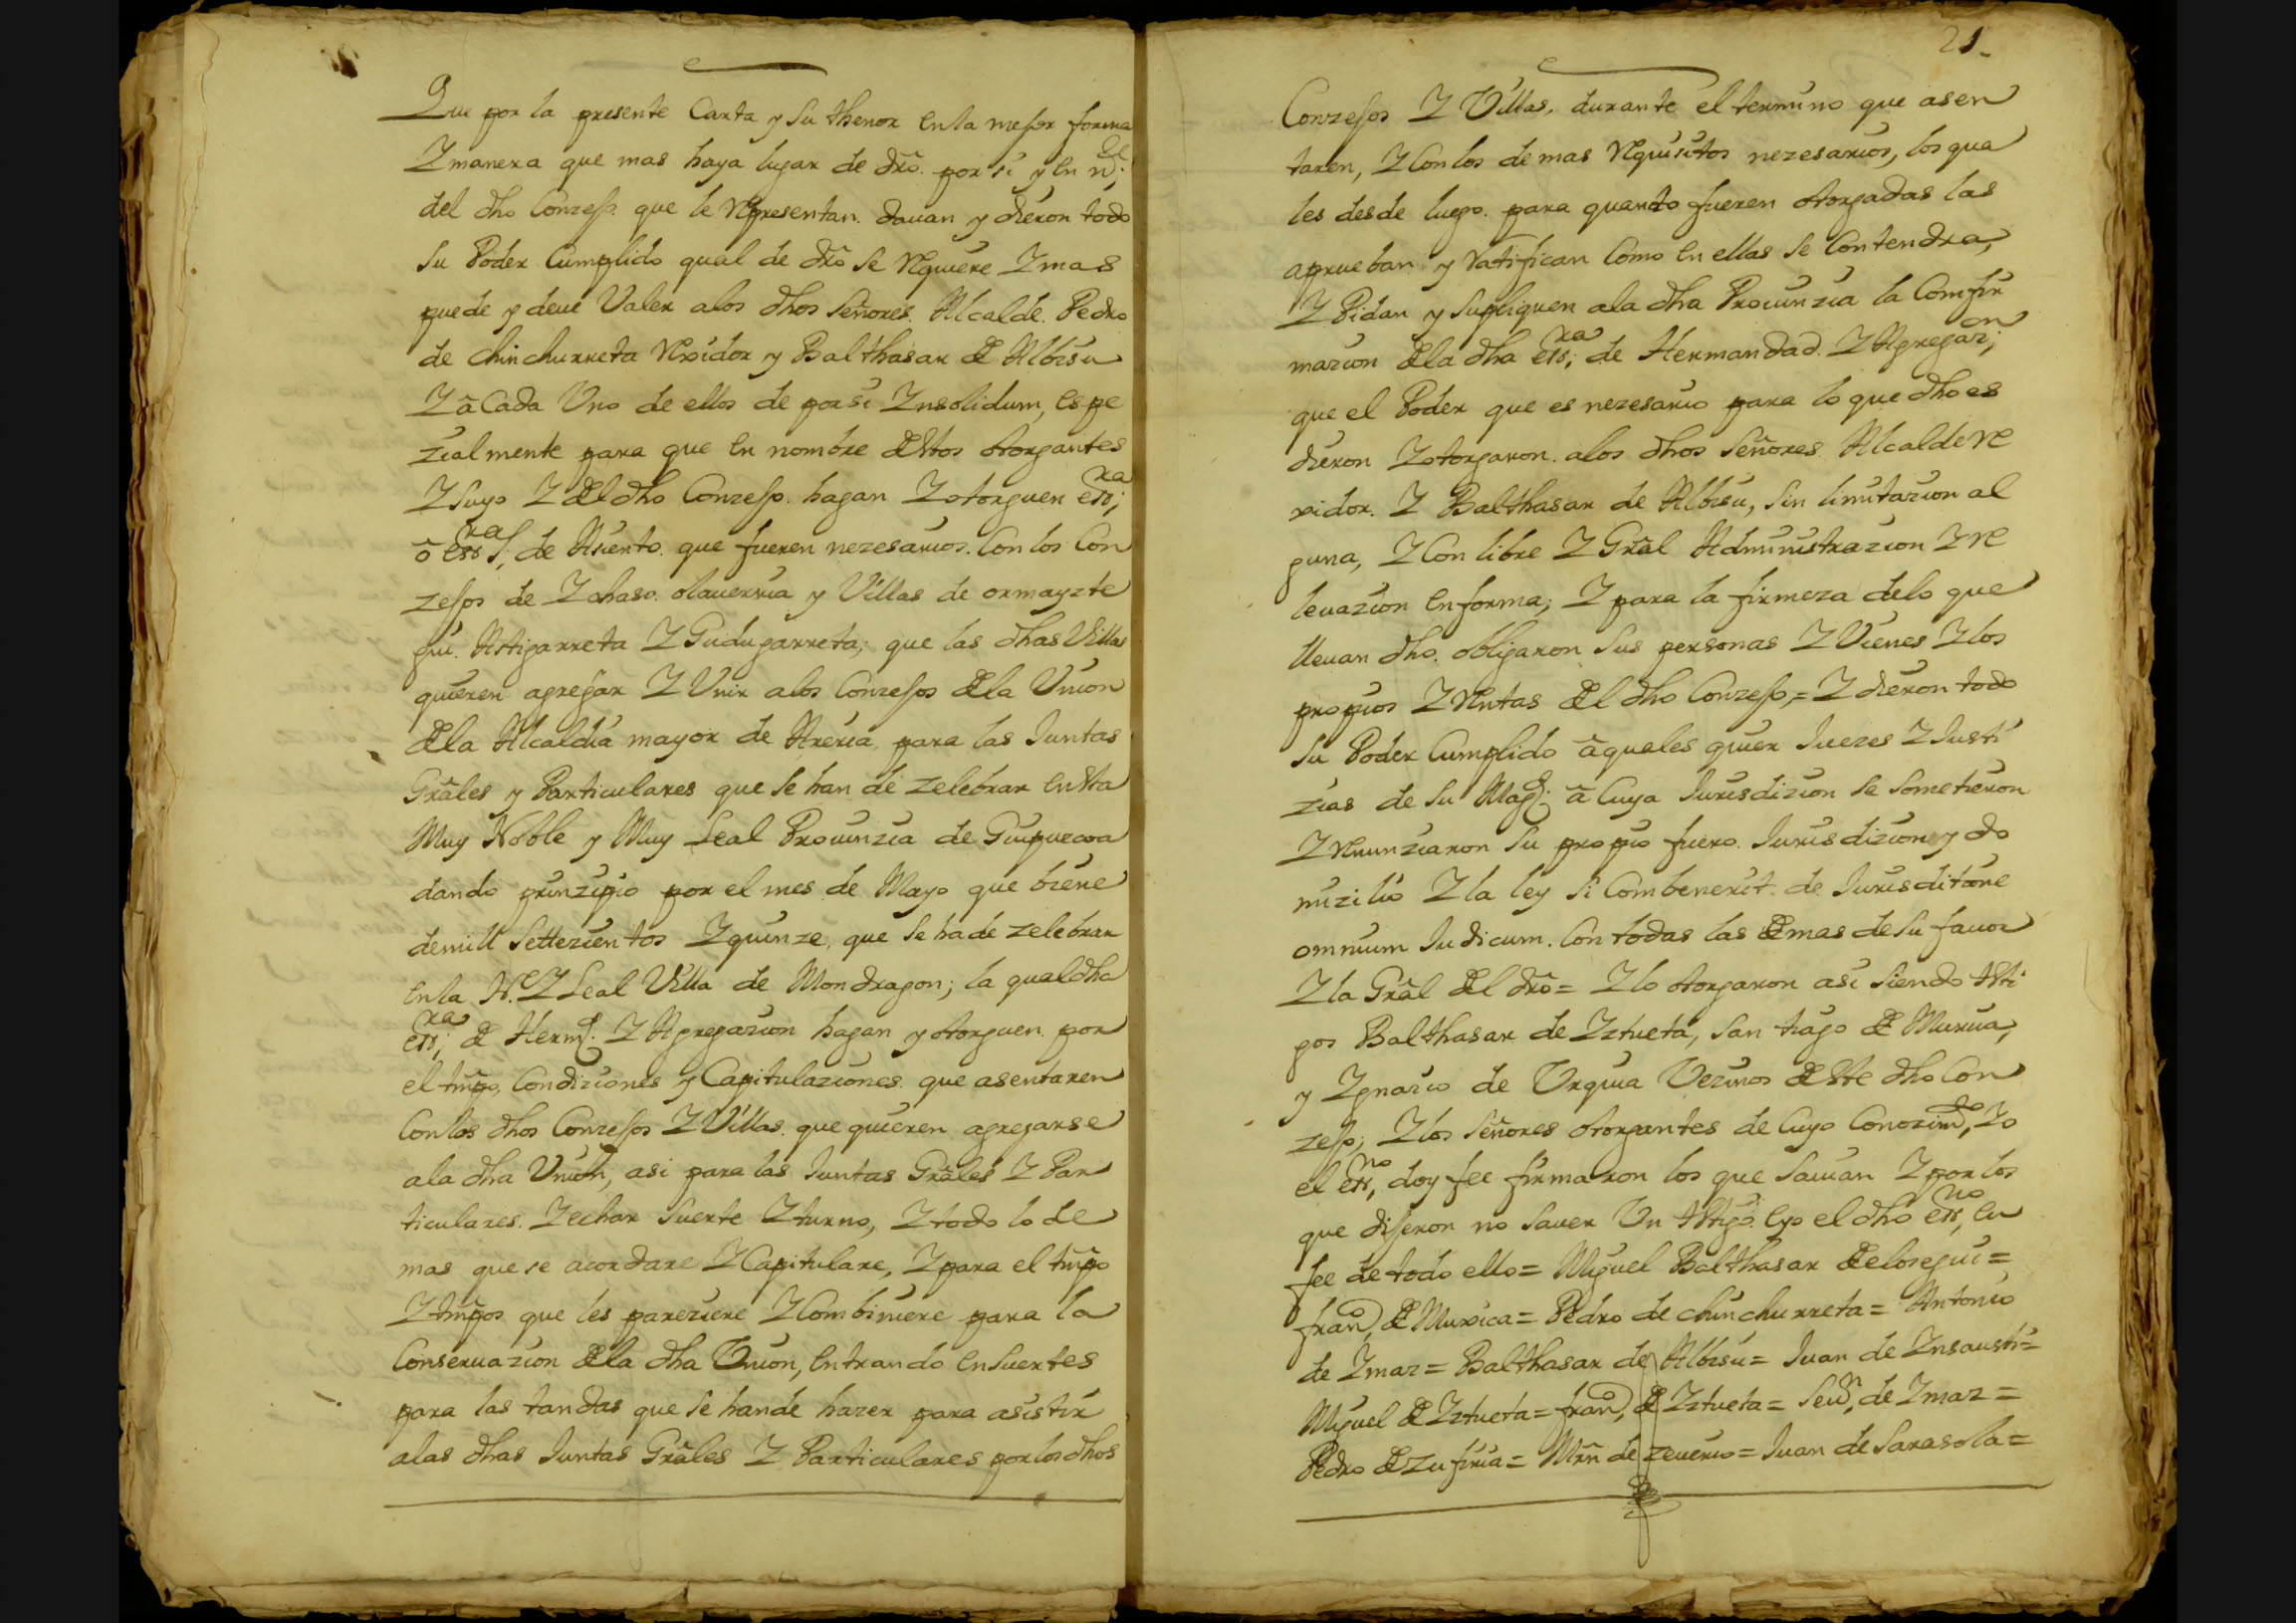 Que por la presente Carta y su thenor en la mejor forma
Y manera que mas haya lugar de dro. por si y en n.e
del dho Conzejo. que le Representan. dauan y dieron todo
su Poder Cumplido qual de dro se Requiere Y mas
puede y deue Valer a los dhos señores. Alcalde. Pedro
de chinchurreta Rexidor y Balthasar de Albisu
Y â Cada Uno de ellos de por si Ynsolidum, espe
zialmente para que en nombre destos otorgantes
Y suyo Y del dho Conzejo. hagan Y otorguen essra;
ô essras; de Asiento. que fueren nezesarios. Con los Con
zejos de Ychaso. olauerria y Villas de ormayzte
gui. Astigarreta Y Gudugarreta; que las dhas Villas
quieren agregar Y Unir a los Conzejos de la Union
de la Alcaldia mayor de Areria, para las Juntas
Grâles y Particulares que se han de zelebrar en esta
Muy Noble y Muy Leal Prouinzia de Guipuzcoa
dando prinzipio por el mes de Mayo que biene
de mill settezientos Y quinze, que se ha de zelebrar
en la N. Y Leal Villa de Mondragon; la qual dha
essra; de Hermd. Y Agregazion hagan y otorguen. por
el tmpo, Condiziones y Capitulaziones. que asentaren
Con los dhos Conzejos Y Villas. que quieren agregarse
a la dha Union, asi para las Juntas Grâles Y Par
ticulares. Y echar suerte Y turno, Y todo lo de
mas que se acordare Y Capitulare, Y para el tmpo
Y tmpos que les pareziere Y Combiniere para la
Conseruazion de la dha Union, entrando en suertes
para las tandas que se han de hazer para asistir
a las dhas Juntas Grâles Y Particulares por los dhos
21
Conzejos Y Villas. durante el termino que asen
taren, Y Con los demas Requisitos nezesarios, los qua
les desde luego. para quanto fueren otorgadas las
aprueban y Ratifican Como en ellas se Contendra,
Y Pidan y supliquen a la dha Prouinzia la Comfir
mazion de la dha essra; de Hermandad. Y Agregazon;
que el Poder que es nezesario para lo que dho es
dieron Y otorgaron. a los dhos señores. Alcalde Re
xidor. Y Balthasar de Albisu, sin limitazion al
guna, Y Con libre Y Grâl Administrazion Y Re
leuazion en forma; Y para la firmeza de lo que
lleuan dho. obligaron sus personas Y Vienes Y los
propios Y Rentas del dho Conzejo,= Y dieron todo
su Poder Cumplido â quales quier Juezes Y Justi
zias de su Magd. â Cuya Jurisdizion se sometieron
Y Renunziaron su propio fuero. Jurisdizion y do
mizilio Y la ley si Combenerit. de Jurisditione
omnium Judicum. Con todas las demas de su fauor
Y la Grâl del dro= Y lo otorgaron asi siendo testi
gos Balthasar de Yztueta, san tiago de Murua,
y Ygnazio de Urquia Vezinos deste dho Con
zejo; Y los señores otorgantes de Cuyo Conozimdo, Yo
el essno, doy fee firmaron los que sauian Y por los
que dijeron no sauer Un testigo. e yo el dho essno, en
fee de todo ello= Miguel Balthasar de elosegui=
franco, de Muxica= Pedro de chinchurreta= Antonio
de Ymaz= Balthasar de Albisu= Juan de Ynsausti=
Miguel de Yztueta= franco, de Yztueta= seun, de Ymaz=
Pedro de zufiria= Mrn de zeuerio= Juan de sarasola=